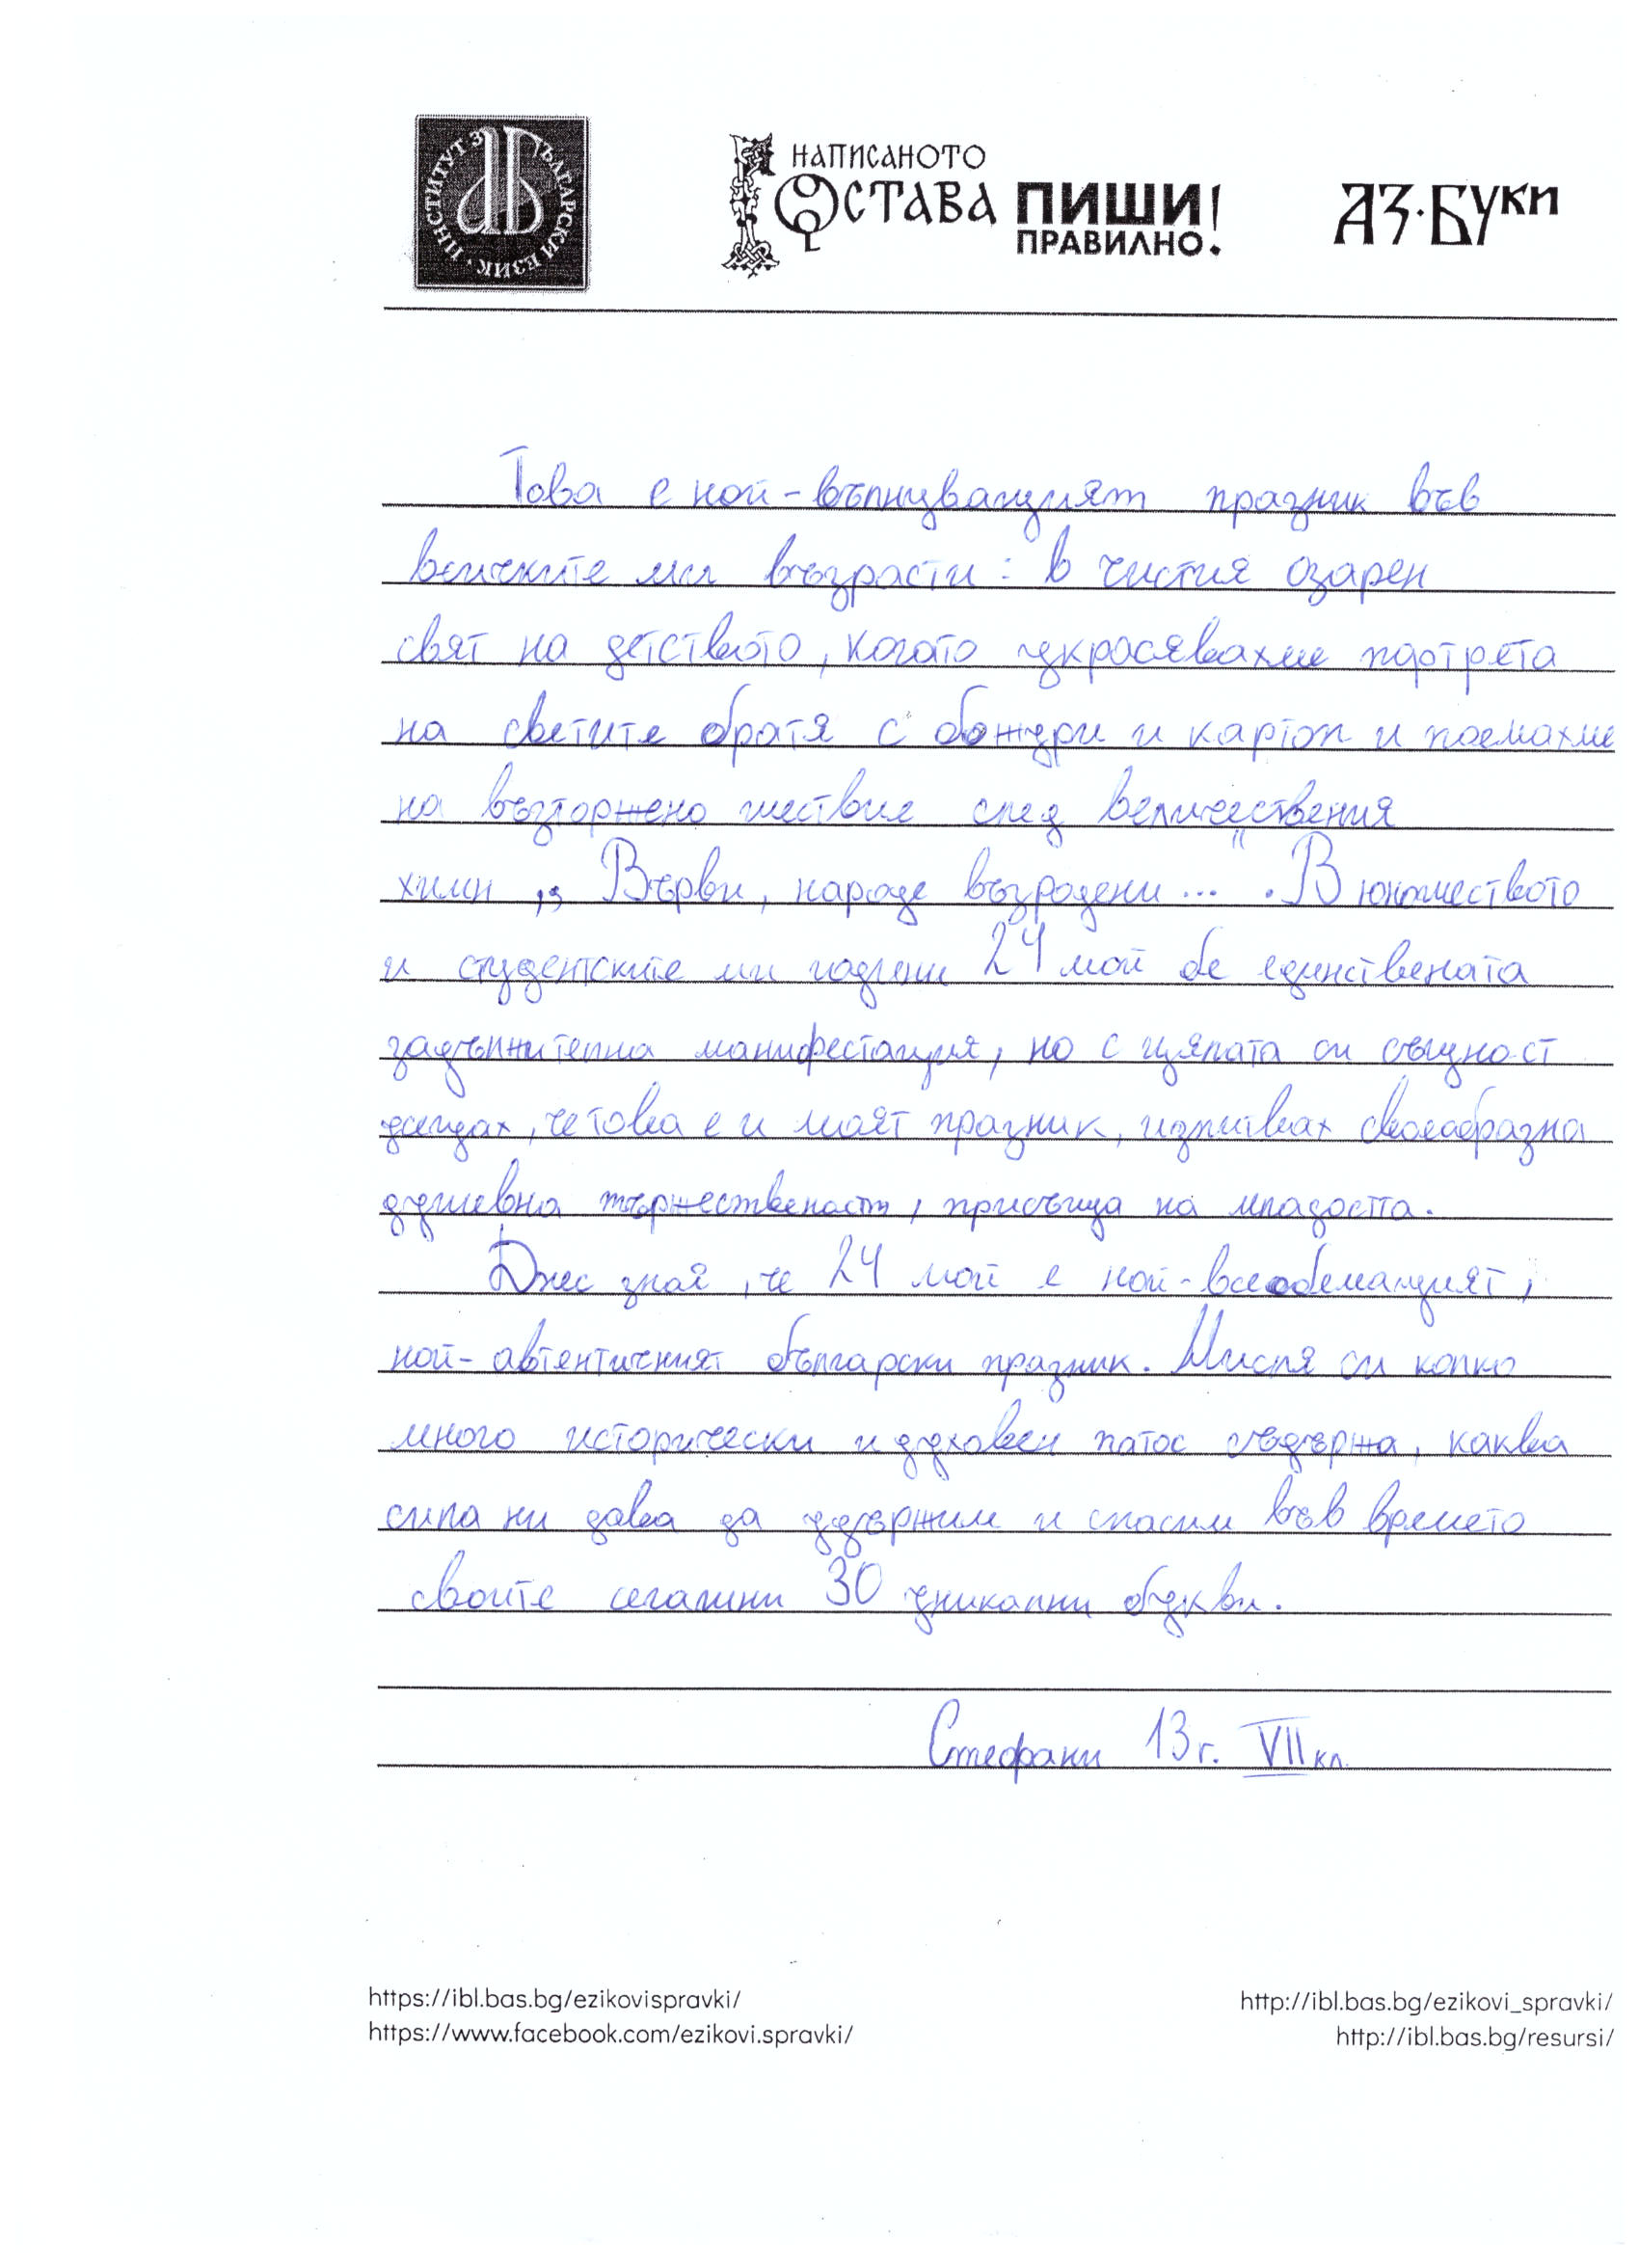 ИНСТИТУТ ЗА БЪЛГАРСКИ ЕЗИК
НАПИСАНОТО
ОСТАВА ПИШИ!
ПРАВИЛНО!
АЗ·БУКИ
Това е най-вълнуващият празник във
всичките ми възрасти: в чистия озарен
свят на детството, когато украсявахме портрета
на светите братя с божури и картон и поемахме
на възторжено шествие след величествения
химн „Върви, народе възродени..." . В юношеството
и студентските ми години 24 май бе единствената
задължителна манифестация, но с цялата си същност
дещах, че това е и моят празник, изпитвах своеобразна
душевна тържественост, присъща на младостта.
Днес зная, че 24 май е най-всеобемащият,
най-автентичният български празник. Мисля си колко
много исторически и духовен патос съдържа, каква
сила ни дава да удържим и спасим във времето
своите сегашни 30 уникални букви.
Стефани 13г. VII кл.
https://ibl.bas.bg/ezikovispravki/
http://ibl.bas.bg/ezikovi_spravki/
https://www.facebook.com/ezikovi.spravki/
http://ibl.bas.bg/resursi/